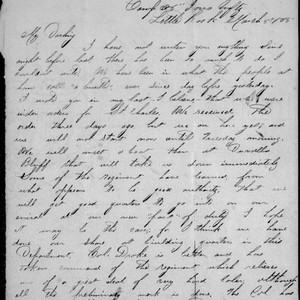 Camp 36" Iowa Infty
Little Rock March 5th 1865
My Darling
I have not written you anything since
night before last there has been so much to do I
couldnt write. We have been in what the people at
home call a "bustle" ever since day before yesterday.
I wrote you in my last I believe that we were
under orders for St Charles. We received the
order three days ago but are on hand yet, and
we will not start now until Tuesday morning.
We will meet a boat then at Duvalls
Bluff that will take us down immediately
Some of the regiment have learned, from
what appears to be good authority, that we
will get good quarters to move into on our
arrival at our new post of duty. I hope
it may be the case, for I think we have
done our share at building quarters in this
Department. Col. Drake is better and has
taken command of the regiment which relieves
me of a great deal of very hard labor, although
all the preliminary work is done. The Col has